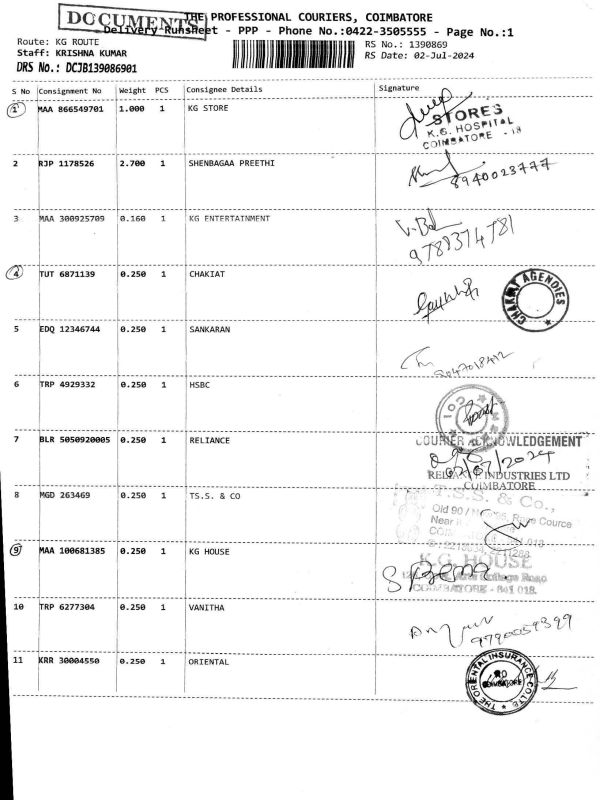 DOCUMENTS
THE PROFESSIONAL COURIERS, COIMBATORE
Delivery Runsheet - PPP - Phone No.:0422-3505555 - Page No.:1
Route: KG ROUTE
Staff: KRISHNA KUMAR
DRS No.: DCJB139086901
RS No.: 1390869
RS Date: 02-Jul-2024
S No Consignment No Weight PCS Consignee Details Signature
1 MAA 866549701 1.000 1 KG STORE
STORES
K.G. HOSPITAL
COIMBATORE - 18
2 RJP 1178526 2.700 1 SHENBAGAA PREETHI
8940023777
3 MAA 300925709 0.160 1 KG ENTERTAINMENT
9789374781
4 TUT 6871139 0.250 1 CHAKIAT
CHAKIAT AGENCIES
5 EDQ 12346744 0.250 1 SANKARAN
6 TRP 4929332 0.250 1 HSBC
7 BLR 5050920005 0.250 1 RELIANCE
COURIER ACKNOWLEDGEMENT
02/07/2024
RELIANCE INDUSTRIES LTD
COIMBATORE
8 MGD 263469 0.250 1 TS.S. & CO
T.S.S. & Co.,
Old 90 / Race Cource
Near
9 MAA 100681385 0.250 1 KG HOUSE
K.G. HOUSE
Arts College Road
COIMBATORE - 641 018.
10 TRP 6277304 0.250 1 VANITHA
9790059399
11 KRR 30004550 0.250 1 ORIENTAL
THE ORIENTAL INSURANCE CO LTD
COIMBATORE